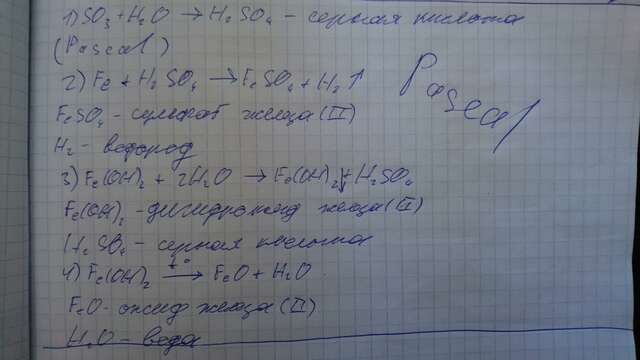 1) SO₃ + H₂O → H₂SO₄ - серная кислота
(Pascal)
2) Fe + H₂SO₄ → FeSO₄ + H₂↑
FeSO₄ - сульфат железа (II)
H₂ - водород
3) Fe(OH)₂ + 2H₂O → Fe(OH)₂↓ + H₂SO₄
Fe(OH)₂ - дигидроксид железа (II)
H₂SO₄ - серная кислота
4) Fe(OH)₂ t° → FeO + H₂O
FeO - оксид железа (II)
H₂O - вода
Pascal